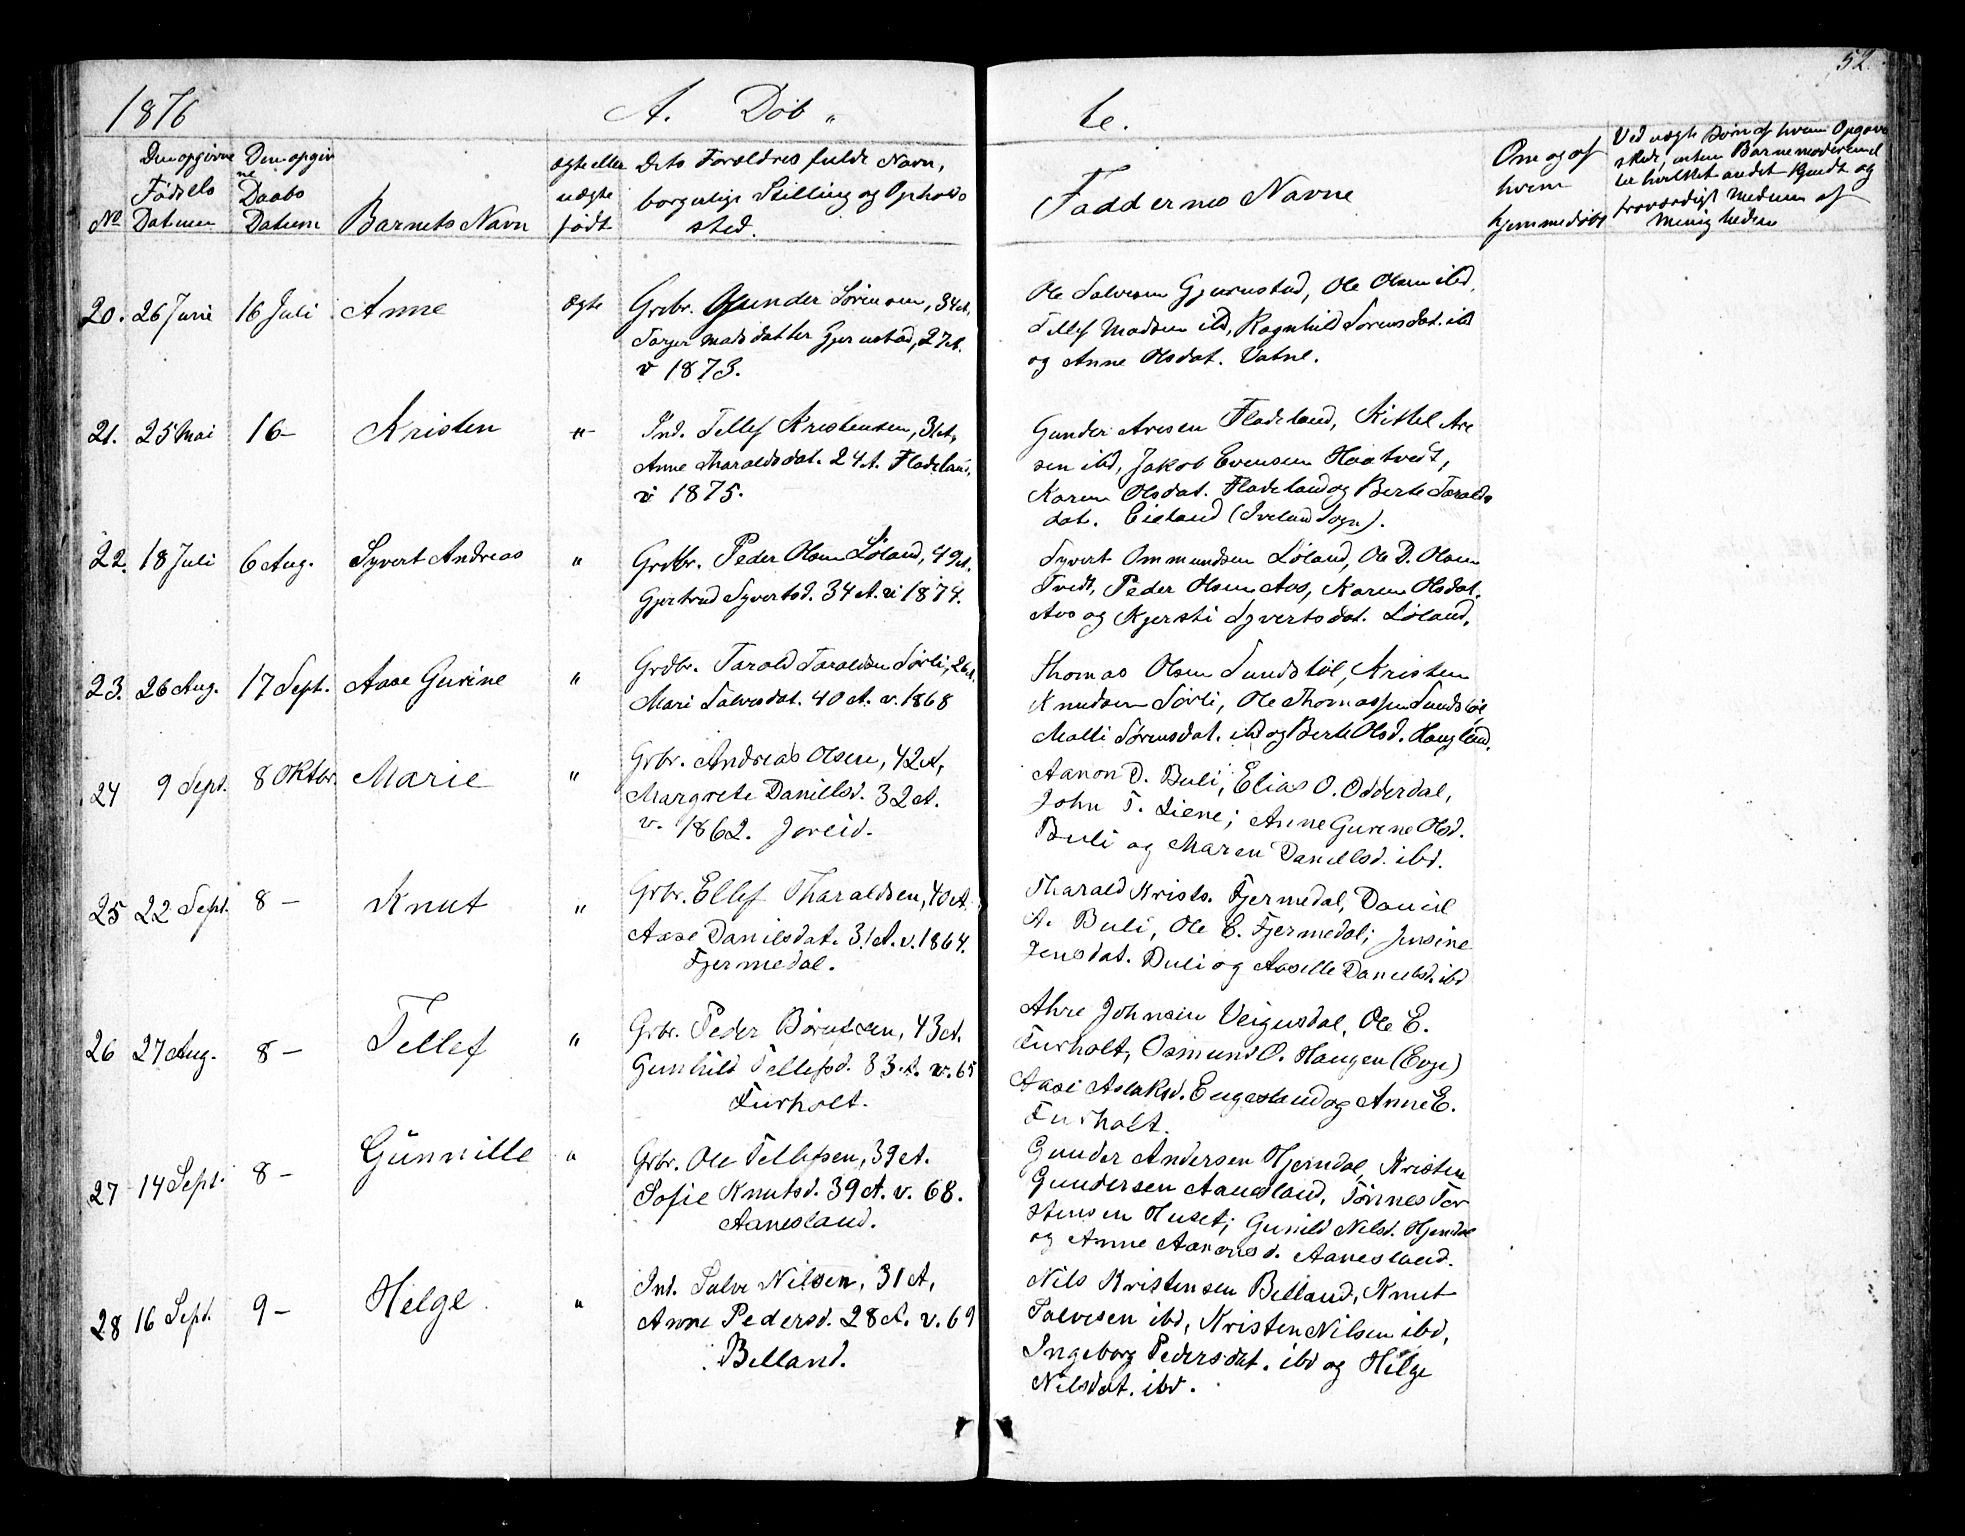 52.
1876
A. Døb„
te.
No
Den opgivne Fødsels Datum
Den opgivne Daabs Datum
Barnets Navn
ægte eller uægte født
Dets Forældres fulde Navn,
borgerlige Stilling og Opholds
sted.
Faddernes Navne
Om og af
hvem
hjemmedøbt
Ved uægte Børn af hvem Opgave
skede, enten Barnemoderen el
ler hvilket andet kjendt og
troværdigt Medlem af
Menigheden
20. 26 Juni 16 Juli Anne ægte Grbr. Gunder Sørensen, 34 A,
Torjer Madsdatter Gjerustad, 27 A.
v 1873.
Ole Salvesen Gjerustad, Ole Olsen ibd,
Tellef Madsen ibd, Ragnhild Sorensdat. ibd
og Anne Olsdat. Vatne.
21. 25 Mai 16 – Kristen „ Ind. Tellef Kristensen, 31 A,
Anne Tharaldsdat. 24 A. Fladeland,
v 1875.
Gunder Aresen Fladeland, Kittel Are
sen ibd, Jakob Evensen Haatvedt,
Karen Olsdat. Fladeland og Berte Taralds
dat. Eieland (Iveland Sogn).
22. 18 Juli 6 Aug. Syvert Andreas „ Grdbr. Peder Olsen Løland, 49 A.
Gjertrud Syvertsd. 34 A. v 1874.
Syvert Ommundsen Løland, Ole D. Olsen
Tvedt, Peder Olsen Aas, Karen Olsdat.
Aas og Kjersti Syvertsdat. Løland,
23. 26 Aug. 17 Sept. Aase Gurine „ Grdbr. Tarald Taraldsen Sørli, 26 A.
Mari Salvesdat. 40 A. v. 1868
Thomas Olsen Sundstøl, Kristen
Knudsen Sørli, Ole Thomassen Sundstøl
Malli Sørensdat. ibd og Berte Olsd. Haugland.
24 9 Sept. 8 Oktbr. Marie „ Grbr. Andreas Olsen, 42 A,
Margrete Danielsd. 32 A.
v. 1862. Joreid.
Aanon D. Buli, Elias O. Odderdal,
John T. Liene; Anne Gurine Olsd.
Buli og Maren Danielsd. ibd.
25 22 Sept. 8 – Knut „ Grbr. Ellef Tharaldsen, 40 A.
Aase Danilsdat. 31 A. v. 1864.
Fjermedal.
Tharald Krists. Fjermedal, Daniel
A. Buli, Ole E. Fjermedal; Jensine
Jensdat. Buli og Aaselle Danielsd. ibd
26 27 Aug. 8 – Tellef „ Grbr. Peder Børulsen, 43 A.
Gunhild Tellefsd. 33 A. v. 65
Furholt.
Ahre Johnsen Veigusdal, Ole E.
Furholt, Osmund O. Haugen (Evje)
Aase Aslaksd. Eugesland og Anne E.
Furholt.
27 14 Sept. 8 – Günnille „ Grbr. Ole Tellefsen, 39 A.
Sofie Knutsd. 39 A. v. 68.
Aanesland.
Gunder Andersen Hjemdal, Kristen
Gundersen Aanesland, Tönnes Tor
stensen Huset; Gunild Nilsd. Hjemdal
og Anne Aanonsd. Aanesland.
28 16 Sept. 9 – Helge „ Ind. Salve Nilsen, 31 A,
Anne Pedersd. 28 A. v. 69
Belland.
Nils Kristensen Belland, Knut
Salvesen ibd, Kristen Nilsen ibd,
Ingeborg Pedersdat. ibd og Helge
Nilsdat. ibd.